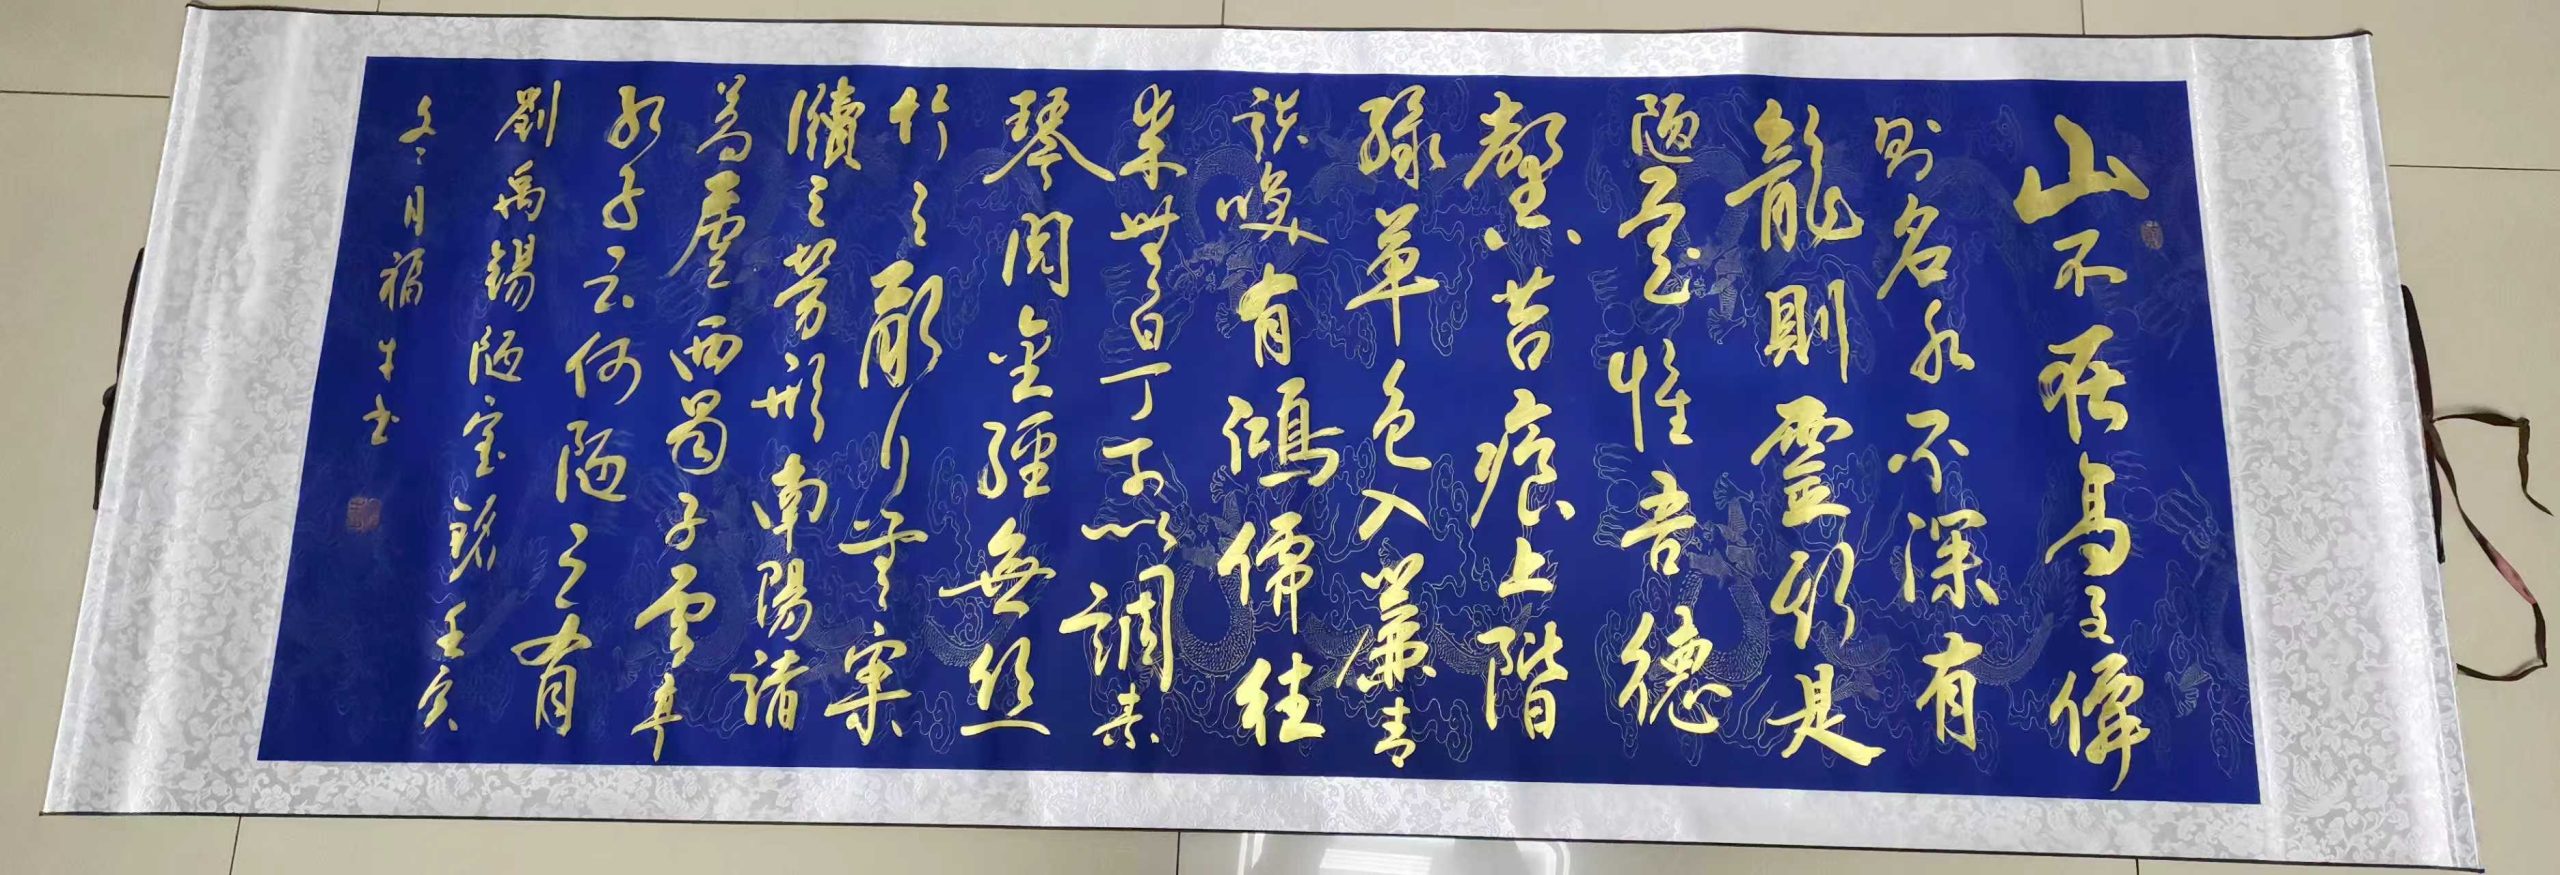 山不在高有僊
则名水不深有
龍則靈斯是
陋室惟吾德
馨苔痕上階
綠草色入簾青
談咲有鴻儒往
来無白丁可以調素
琴閲金經無丝
竹之亂耳無案
牘之勞形南陽諸
葛廬西蜀子雲亭
孔子云何陋之有
劉禹錫陋室銘壬寅
冬月福牛书